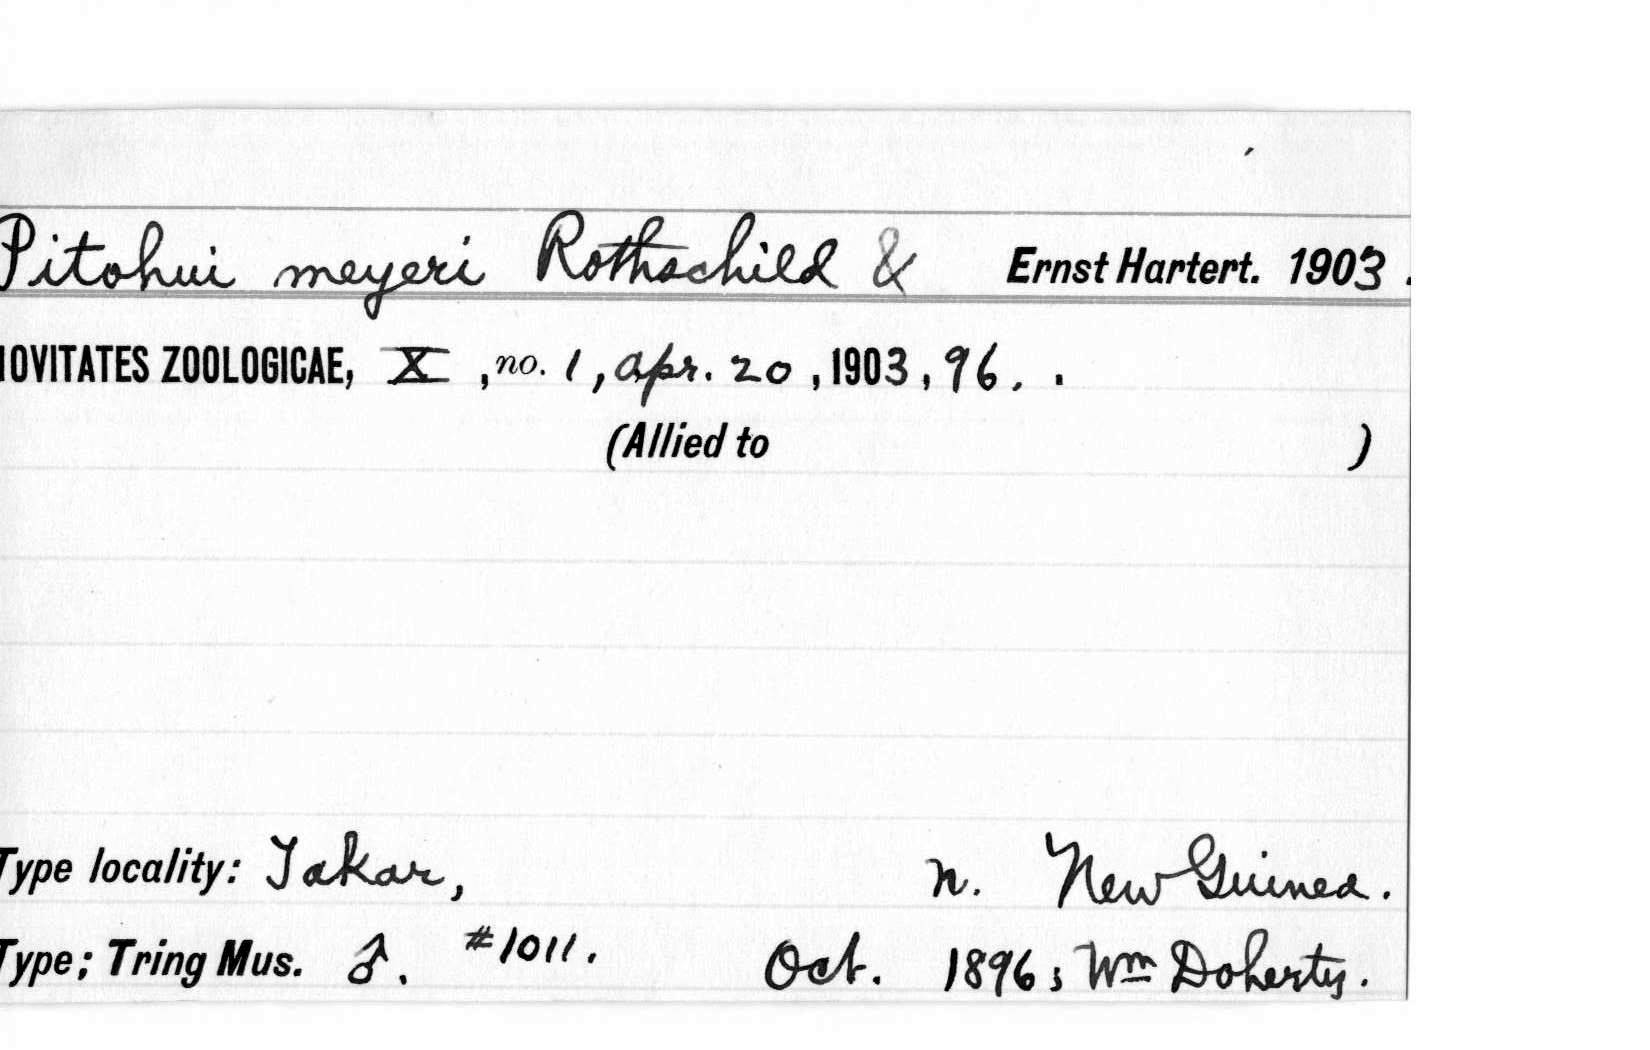 Pitohui meyeri Rothschild & Ernst Hartert. 1903.
NOVITATES ZOOLOGICAE, X, no. 1, Apr. 20, 1903, 96. .
(Allied to )
Type locality: Takar, n. New Guinea.
Type; Tring Mus. ♂. #1011. Oct. 1896; Wm Doherty.